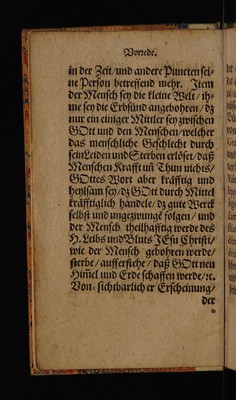 Vorrede.
in der Zeit/und andere Puncten sei-
ne Person betreffend mehr. Item
der Mensch sey die kleine Welt/ ih-
me sey die Erbsünd angebohren/ dz
nur ein einiger Mittler sey zwischen
GOtt und den Menschen/welcher
das menschliche Geschlecht durch
sein Leiden und Sterben erlöset/ daß
Menschen Krafft uñ Thun nichts/
GOttes Wort aber kräfftig und
heylsam sey/dz GOtt durch Mittel
kräfftiglich handele/ dz gute Werck
selbst und ungezwungẽ folgen/ und
der Mensch theilhafftig werde des
H. Leibs und Bluts JEsu Christi/
wie der Mensch gebohren werde/
sterbe/ aufferstehe/ daß GOtt neu
Him̃el und Erde schaffen werde/ꝛc.
Von sichtbarlicher Erscheinung/
der